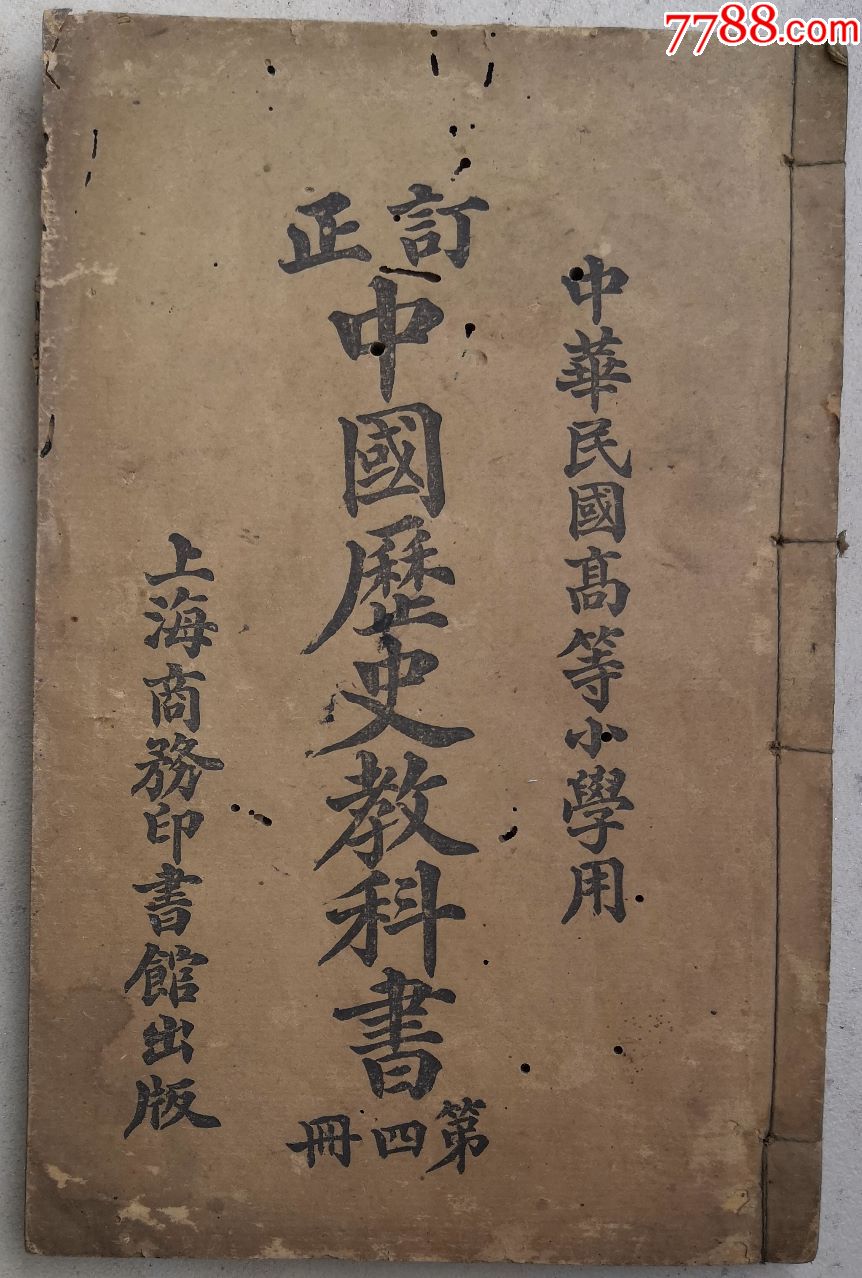 7788.com
中華民國高等小學用
訂正
中國歷史教科書
第四冊
上海商務印書館出版